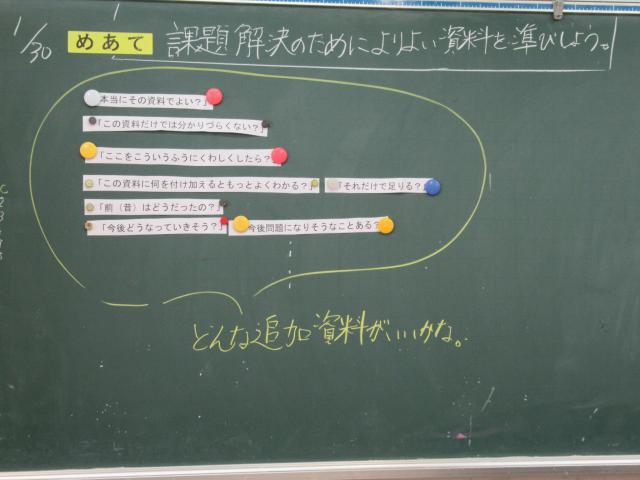 1/30 めあて 課題解決のためによりよい資料を準びしよう。
「本当にその資料でよい？」
「この資料だけでは分かりづらくない？」
「ここをこういうふうにくわしくしたら？」
「この資料に何を付け加えるともっとよくわかる？」 「それだけで足りる？」
「前（昔）はどうだったの？」
「今後どうなっていきそう？」 「今後問題になりそうなことある？」
どんな追加資料がいいかな。